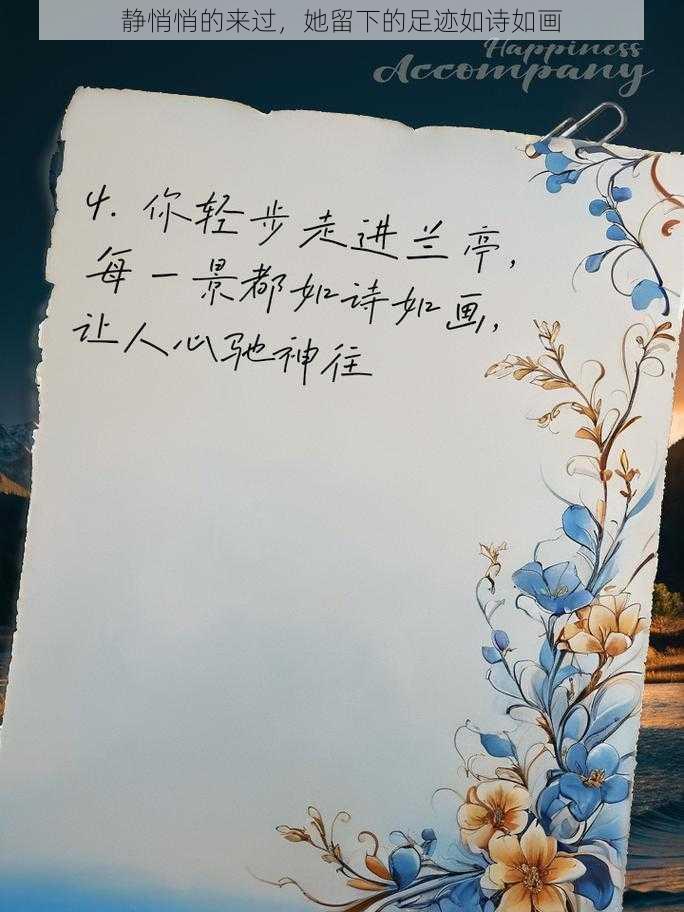 静悄悄的来过，她留下的足迹如诗如画
Happiness
Accompany
4. 你轻步走进兰亭，
每一景都如诗如画，
让人心驰神往